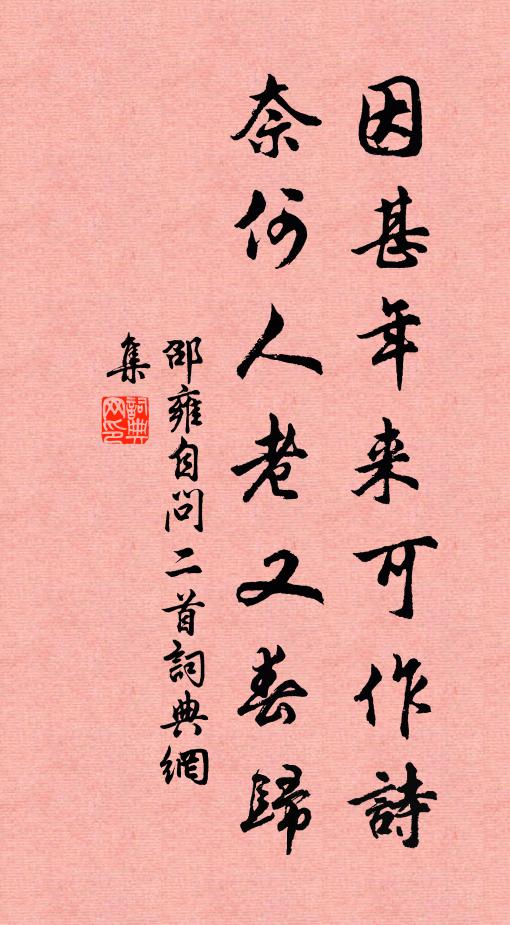 因甚年来可作詩
奈何人老又春歸
邵雍自問二首詞典網
集
詞典网印